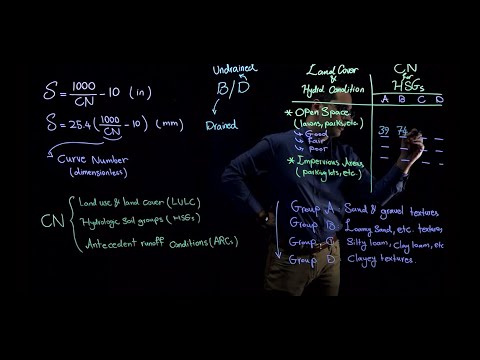 S = 1000/CN - 10 (in)
S = 25.4(1000/CN - 10) (mm)
Curve Number
(dimensionless)
CN
Land use & land cover (LULC)
Hydrologic Soil groups (HSGs)
Antecedent runoff Conditions (ARCs)
Undrained
B/D
Drained
Land Cover
&
Hydrol Condition
CN
for
HSGs
A B C D
* Open Space
(lawns, parks, etc.)
Good 39
Fair
poor
* Impervious Areas
(parking lots, etc.)
Group A: Sand & gravel textures
Group B: Loamy Sand, etc. textures
Group C: Silty loam, Clay loam, etc
Group D: Clayey textures.